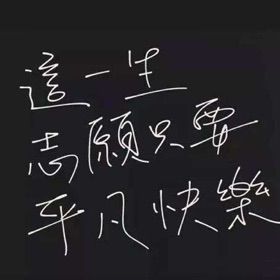 這一生
志願只要
平凡快樂